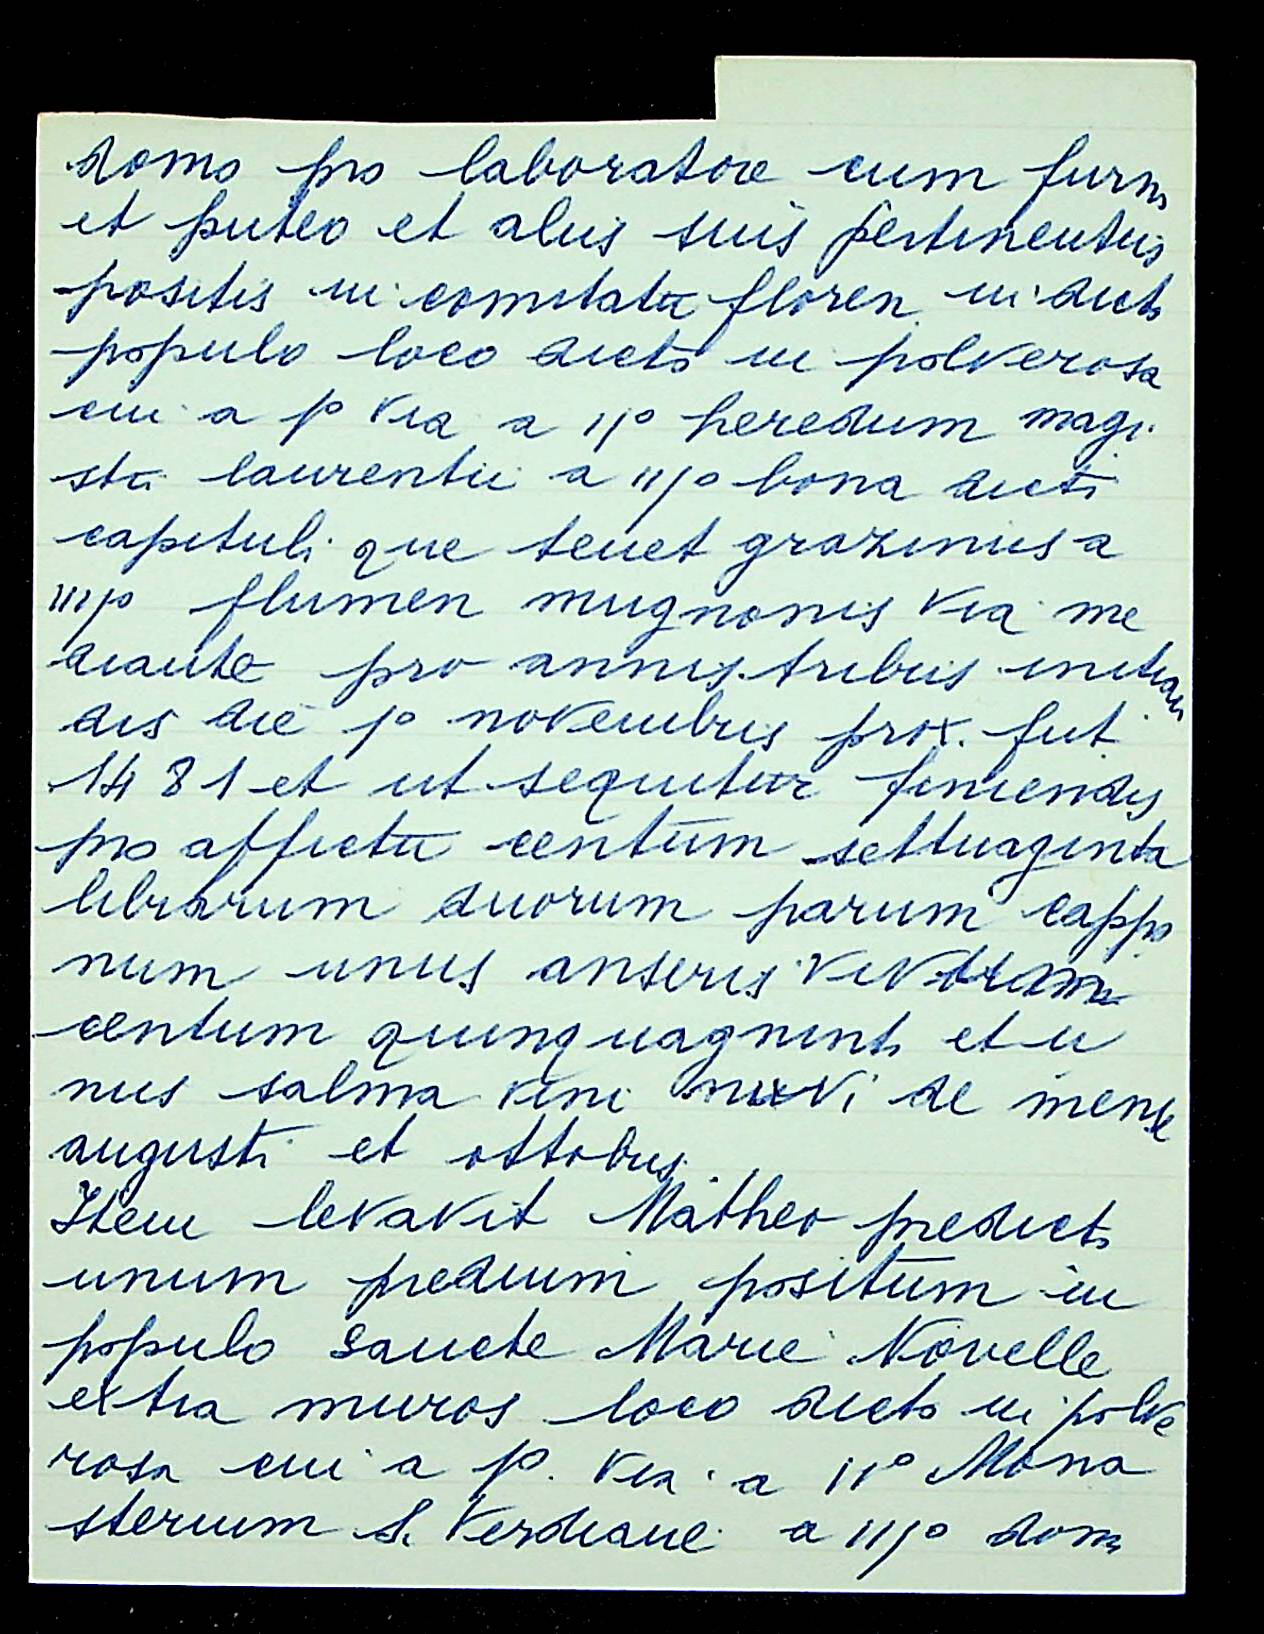 domo pro laboratore cum furno
et puteo et aliis suis pertinentiis
positis in comitatu floren. in dicto
populo loco dicto in polverosa
cui a p° via a 11° heredum magi
stri laurentii a 111° bona dicti
capituli que tenet grazinus a
1111° flumen mugnonis via me
diante pro annis tribus initian
dis die p° novembris prox. fut.
1481 et ut sequitur finiendis
pro affictu centum settuaginta
librarum duorum parum cappo
num unius anseris
centum quinquaginta et u
nius salma vini de mense
augusti et ottobris
Item levavit Matheo predicto
unum predium positum in
populo Sancte Marie Novelle
extra muros loco dicto in polve
rosa cui a p°. via a 11° Mona
sterium S. Verdiane a 111° dom